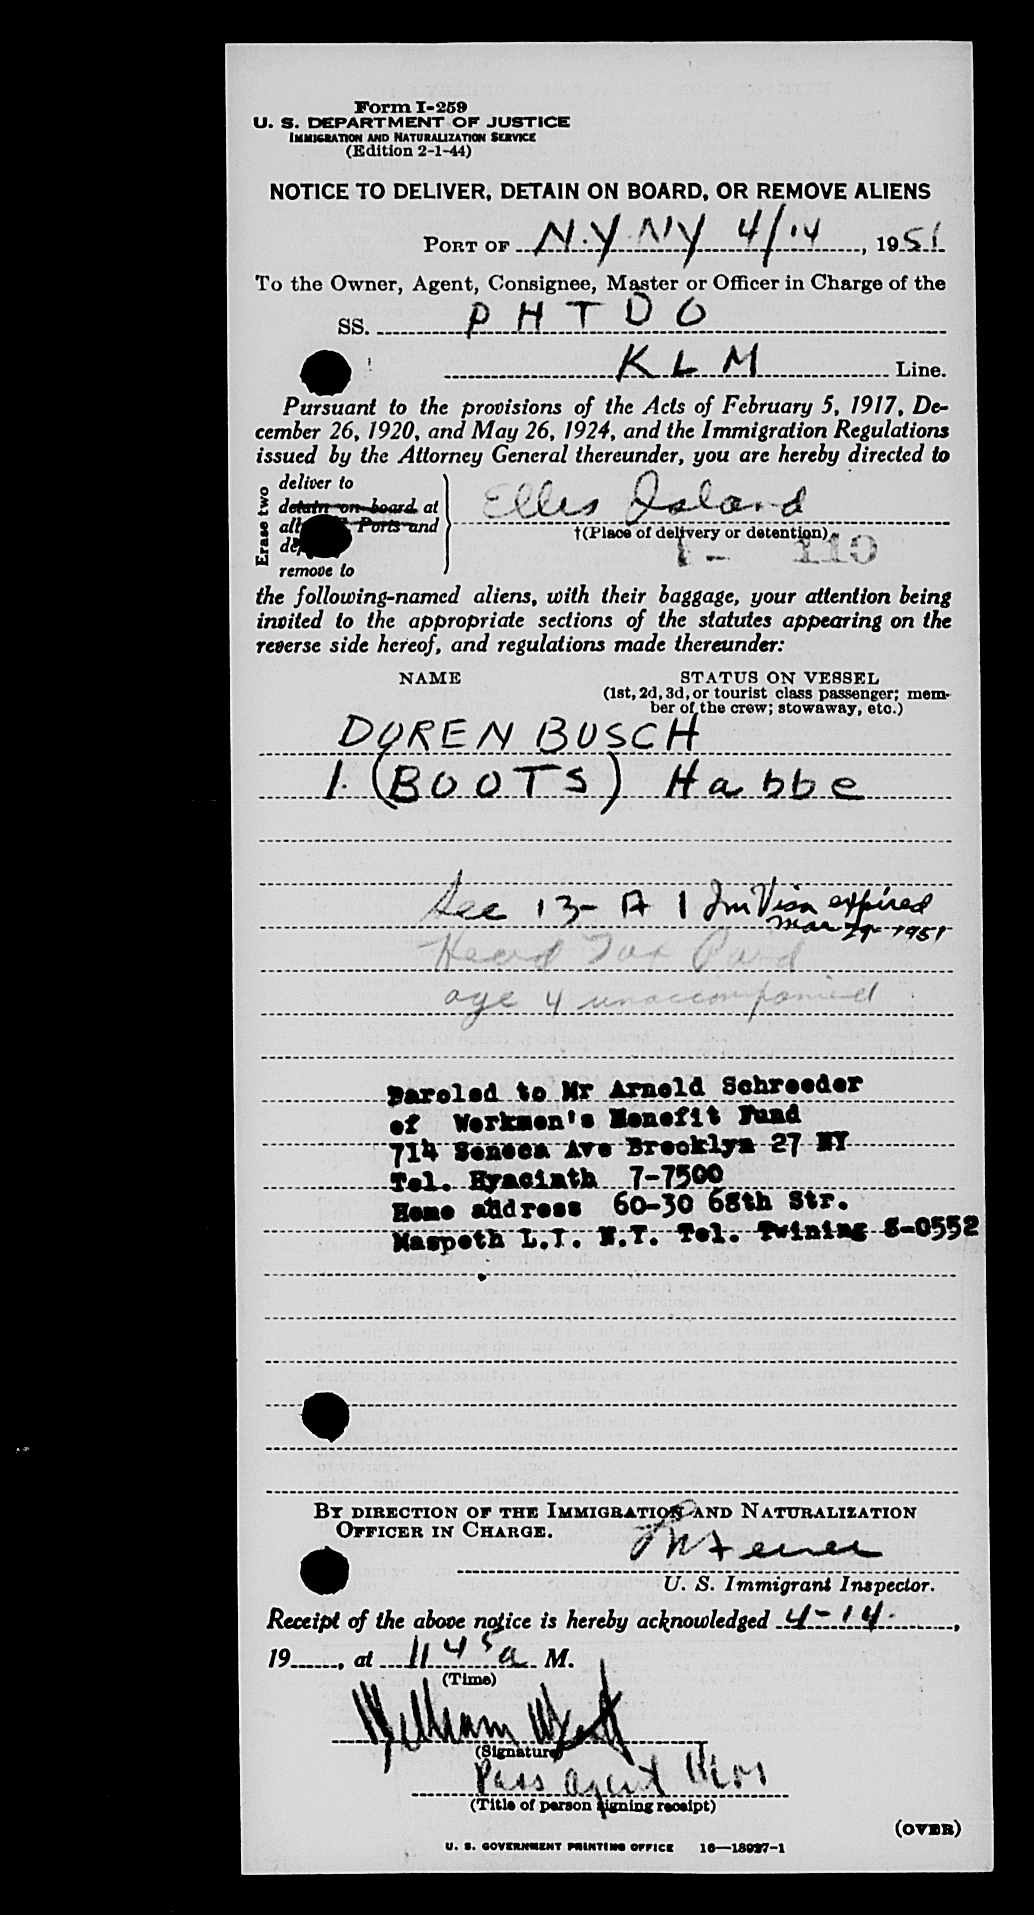 Form I-259
U. S. DEPARTMENT OF JUSTICE
IMMIGRATION AND NATURALIZATION SERVICE
(Edition 2-1-44)
NOTICE TO DELIVER, DETAIN ON BOARD, OR REMOVE ALIENS
PORT OF N.Y. NY 4/14, 1951
To the Owner, Agent, Consignee, Master or Officer in Charge of the
SS. P H T D O
K L M Line.
Pursuant to the provisions of the Acts of February 5, 1917, De-
cember 26, 1920, and May 26, 1924, and the Immigration Regulations
issued by the Attorney General thereunder, you are hereby directed to
Erase two
deliver to
detain on board at
all Ports and
remove to
Ellis Island
†(Place of delivery or detention)
1 - 110
the following-named aliens, with their baggage, your attention being
invited to the appropriate sections of the statutes appearing on the
reverse side hereof, and regulations made thereunder:
NAME STATUS ON VESSEL
(1st, 2d, 3d, or tourist class passenger; mem-
ber of the crew; stowaway, etc.)
DOREN BUSCH
1. (BOOTS) Habbe
Sec 13-A 1 Im Visa expired
Mar 29-1951
Head Tax Paid
age 4 unaccompanied
Paroled to Mr Arnold Schroeder
of Workmen's Benefit Fund
714 Seneca Ave Brooklyn 27 NY
Tel. Hyacinth 7-7500
Home address 60-30 68th Str.
Maspeth L.I. N.Y. Tel. Twining 8-0552
BY DIRECTION OF THE IMMIGRATION AND NATURALIZATION
OFFICER IN CHARGE.
U. S. Immigrant Inspector.
Receipt of the above notice is hereby acknowledged 4-14.,
19, at 11 45 a M.
(Time)
William
(Signature)
Pass Agent
(Title of person signing receipt)
(OVER)
U. S. GOVERNMENT PRINTING OFFICE 16—18027-1